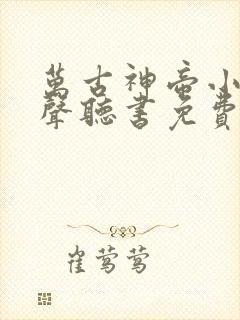 萬古神帝小
聲聽書免費
崔莺莺